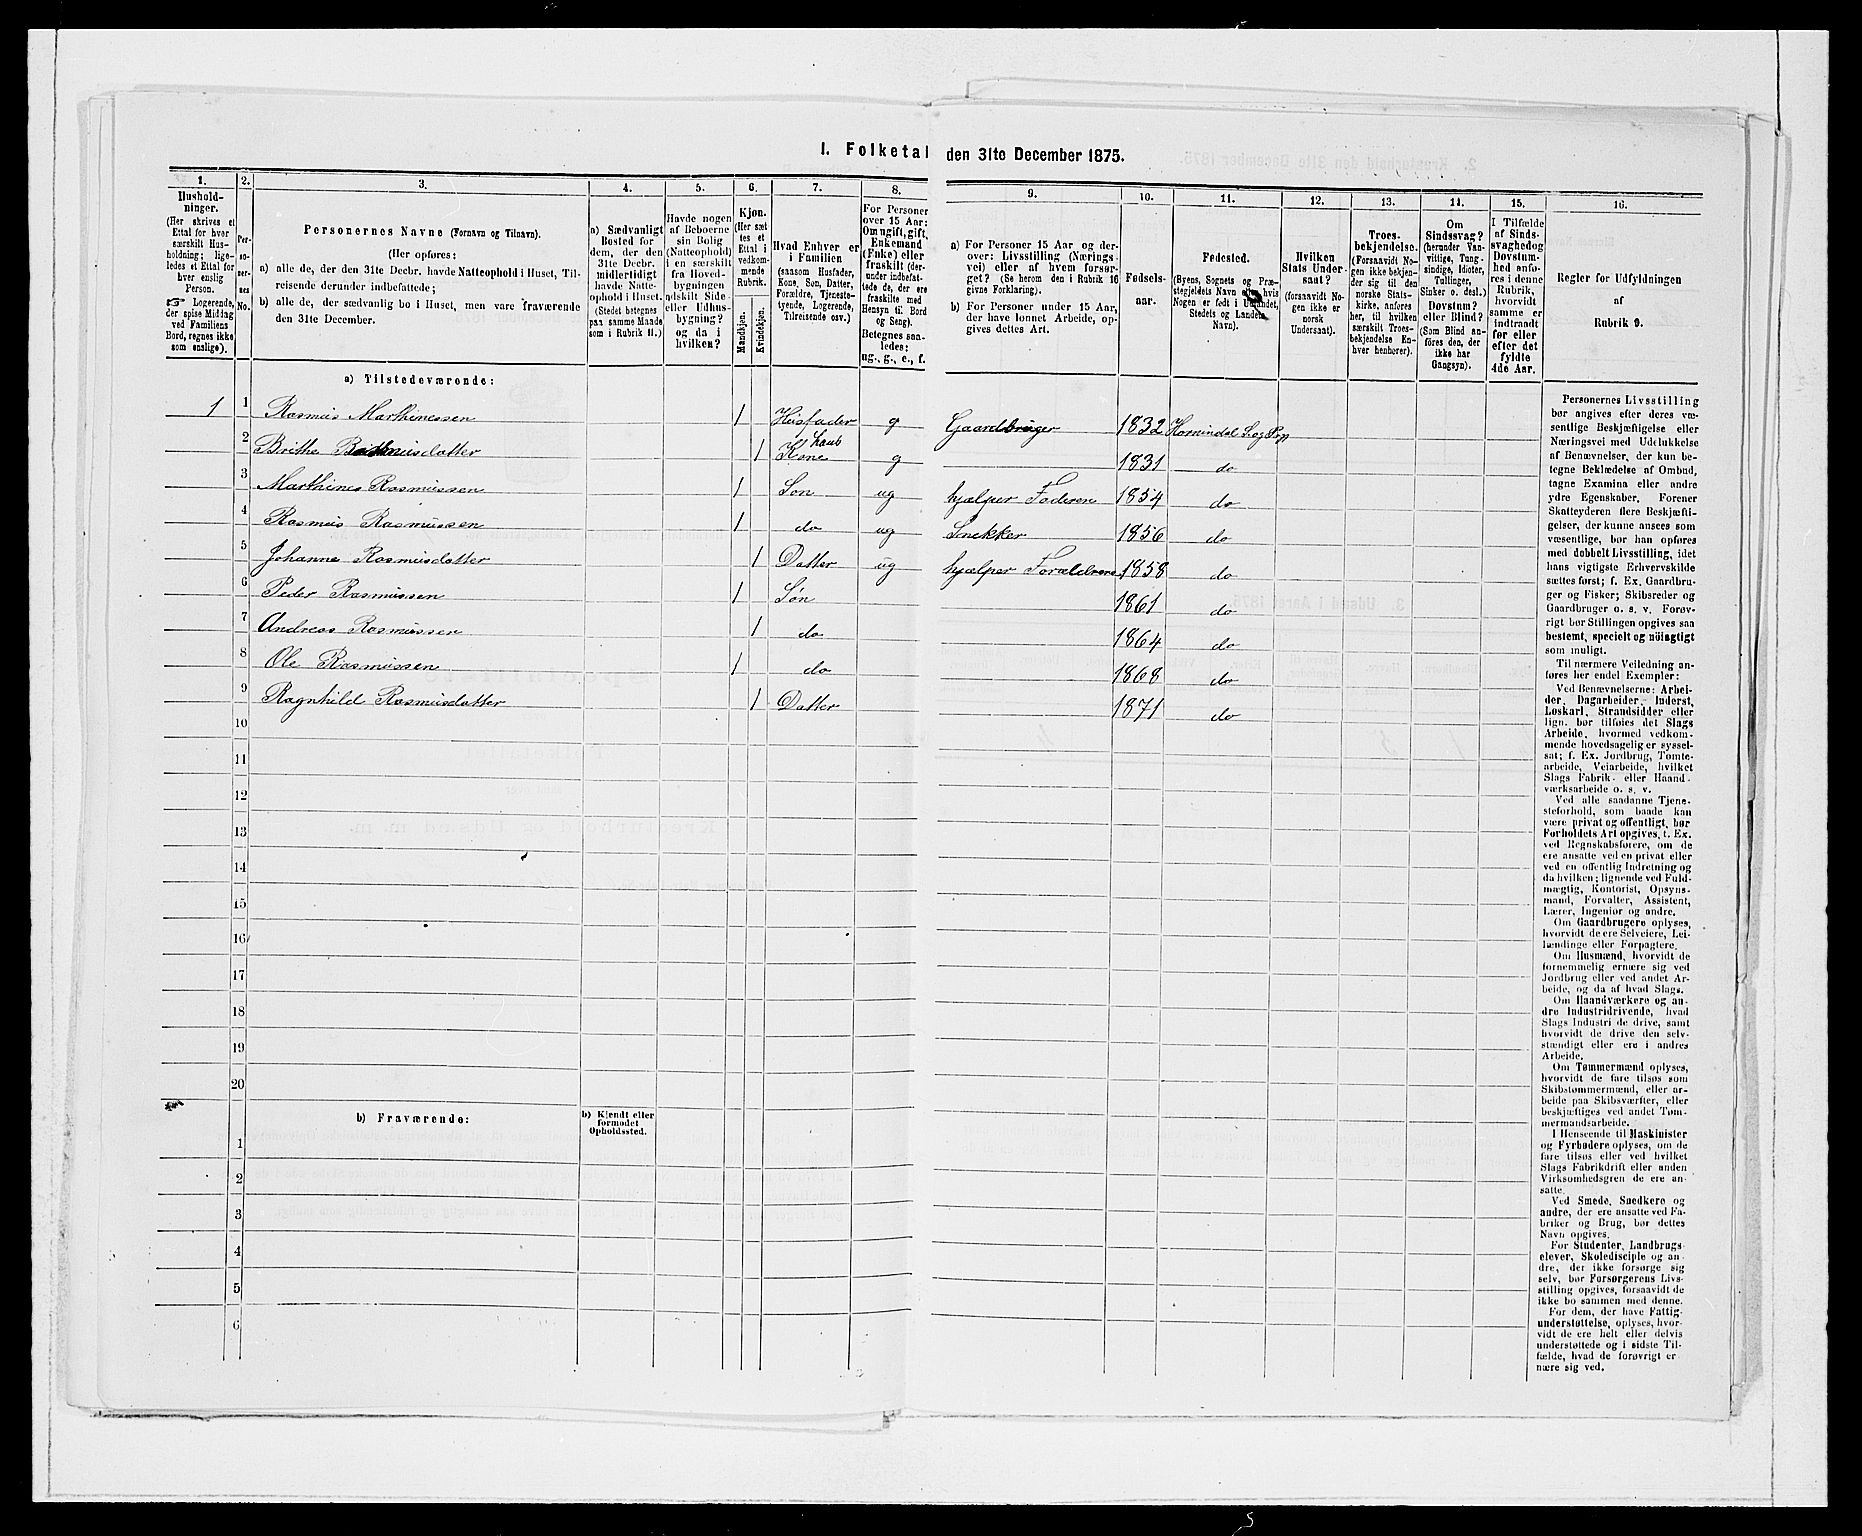 I. Folketal den 31te December 1875.
1. 2. 3. 4. 5. 6. 7. 8. 9. 10. 11. 12. 13. 14. 15. 16.
Hushold-
ninger.
(Her skrives et
Ettal for hver
særskilt Hus-
holdning; lige-
ledes et Ettal for
hver enslig
Person.
☞ Logerende,
der spise Middag
ved Familiens
Bord, regnes ikke
som enslige).
Per-
so-
ner-
nes
No.
Personernes Navne (Fornavn og Tilnavn).
(Her opføres:
a) alle de, der den 31te Decbr. havde Natteophold i Huset, Til-
reisende derunder indbefattede;
b) alle de, der sædvanlig bo i Huset, men vare fraværende
den 31te December.
a) Sædvanligt
Bosted for
dem, der den
31te Decbr.
midlertidigt
havde Natte-
ophold i Huset.
(Stedet betegnes
paa samme Maade
som i Rubrik 11.)
Havde nogen
af Beboerne
sin Bolig
(Natteophold)
i en særskilt
fra Hoved-
bygningen
adskilt Side-
eller Udhus-
bygning?
og da i
hvilken?
Kjøn.
(Her sæt
tes et
Ettal i
vedkom-
mende
Rubrik.
Mandkjøn.
Kvindekjøn.
Hvad Enhver er
i Familien
(saasom Husfader,
Kone, Søn, Datter,
Forældre, Tjeneste-
tyende, Logerende,
Tilreisende osv.)
For Personer
over 15 Aar:
Om ugift, gift,
Enkemand
(Enke) eller
fraskilt (der-
under indbefat-
tede de, der ere
fraskilte med
Hensyn til Bord
og Seng).
Betegnes saa-
ledes:
ug., g., e., f.
a) For Personer 15 Aar og der-
over: Livsstilling (Nærings-
vei) eller af hvem forsør-
get? (Se herom den i Rubrik 16
givne Forklaring).
b) For Personer under 15 Aar,
der have lønnet Arbeide, op-
gives dettes Art.
Fødsels-
aar.
Fødested.
(Byens, Sognets og Præ-
stegjeldets Navn eller, hvis
Nogen er født i Udlandet,
Stedets og Landets
Navn).
Hvilken
Stats Under-
saat?
(forsaavidt No-
gen ikke er
norsk
Undersaat).
Troes-
bekjendelse.
(Forsaavidt No-
gen ikke bekjen-
der sig til den
norske Stats-
kirke, anføres
her, til hvilken
særskilt Troes-
bekjendelse En-
hver henhører).
Om
Sindssvag?
(herunder Van-
vittige, Tung-
sindige, Idioter,
Tullinger,
Sinker o. desl.)
Døvstum?
eller Blind?
(Som Blind an-
føres den, der
ikke har
Gangsyn).
I Tilfælde
af Sinds-
svaghed og
Døvstum-
hed anfø-
res i denne
Rubrik,
hvorvidt
samme er
indtraadt
før eller
efter det
fyldte
4de Aar.
Regler for Udfyldningen
af
Rubrik 9.
a) Tilstedeværende:
1 1 Rasmus Marthinessen 1 Husfader g Gaardbruger 1832 Hornindal S. og Pgj
2 Brithe Rasmusdatter 1 Kone g 1831 do
3 Marthines Rasmussen 1 Søn ug hjælper Faderen 1854 do
4 Rasmus Rasmussen 1 do ug Snekker 1856 do
5 Johanne Rasmusdatter 1 Datter ug hjælper Forældrene 1858 do
6 Peder Rasmussen 1 Søn 1861 do
7 Andreas Rasmussen 1 do 1864 do
8 Ole Rasmussen 1 do 1868 do
9 Ragnhild Rasmusdatter 1 Datter 1871 do
10
11
12
13
14
15
16
17
18
19
20
b) Fraværende:
b) Kjendt eller
formodet
Opholdssted.
1
2
3
4
5
6
Personernes Livsstilling
bør angives efter deres væ-
sentlige Beskjæftigelse eller
Næringsvei med Udelukkelse
af Benævnelser, der kun be-
tegne Beklædelse af Ombud,
tagne Examina eller andre
ydre Egenskaber. Forener
Skatteyderen flere Beskjæfti-
gelser, der kunne ansees som
væsentlige, bør han opføres
med dobbelt Livsstilling, idet
hans vigtigste Erhvervskilde
sættes først; f. Ex. Gaardbru-
ger og Fisker; Skibsreder og
Gaardbruger o. s. v. Forøv-
rigt bør Stillingen opgives saa
bestemt, specielt og nöiagtigt
som muligt.
Til nærmere Veiledning an-
føres her endel Exempler:
Ved Benævnelserne: Arbei-
der, Dagarbeider, Inderst,
Løskarl, Strandsidder eller
lign. bør tilføies det Slags
Arbeide, hvormed vedkom-
mende hovedsagelig er syssel-
sat; f. Ex. Jordbrug, Tømte-
arbeide, Veiarbeide, hvilket
Slags Fabrik- eller Haand-
værksarbeide o. s. v.
Ved alle saadanne Tjene-
steforhold, som baade kan
være privat og offentligt, bør
Forholdets Art opgives, t. Ex.
ved Regnskabsførere, om de
ere ansatte ved en privat eller
ved en offentlig Indretning og
da hvilken; lignende ved Fuld-
mægtig, Kontorist, Opsyns-
mand, Forvalter, Assistent,
Lærer, Ingeniør og andre.
Om Gaardbrugere oplyses,
hvorvidt de ere Selveiere, Lei-
lændinge eller Forpagtere.
Om Husmænd, hvorvidt de
fornemmelig ernære sig ved
Jordbrug eller ved andet Ar-
beide, og da af hvad Slags.
Om Haandværkere og an-
dre Industridrivende, hvad
Slags Industri de drive, samt
hvorvidt de drive den selv-
stændigt eller ere i andres
Arbeide.
Om Tømmermænd oplyses,
hvorvidt de fare tilsøs som
Skibstømmermænd, eller ar-
beide paa Skibsværfter, eller
beskjæftiges ved andet Tøm-
mermandsarbeide.
I Henseende til Maskinister
og Fyrbødere oplyses, om de
fare tilsøs eller ved hvilket
Slags Fabrikdrift eller anden
Virksomhedsgren de ere an-
satte.
Ved Smede, Snedkere og
andre, der ere ansatte ved Fa-
briker og Brug, bør dettes
Navn opgives.
For Studenter, Landbrugs-
elever, Skoledisciple og an-
dre, der ikke forsørge sig
selv, bør Forsørgerens Livs-
stilling opgives, forsaavidt de
ikke bo sammen med denne.
For dem, der have Fattig-
understøttelse, oplyses, hvor-
vidt de ere helt eller delvis
understøttede og i sidste Til-
fælde, hvad de forøvrigt er
nære sig ved.
5